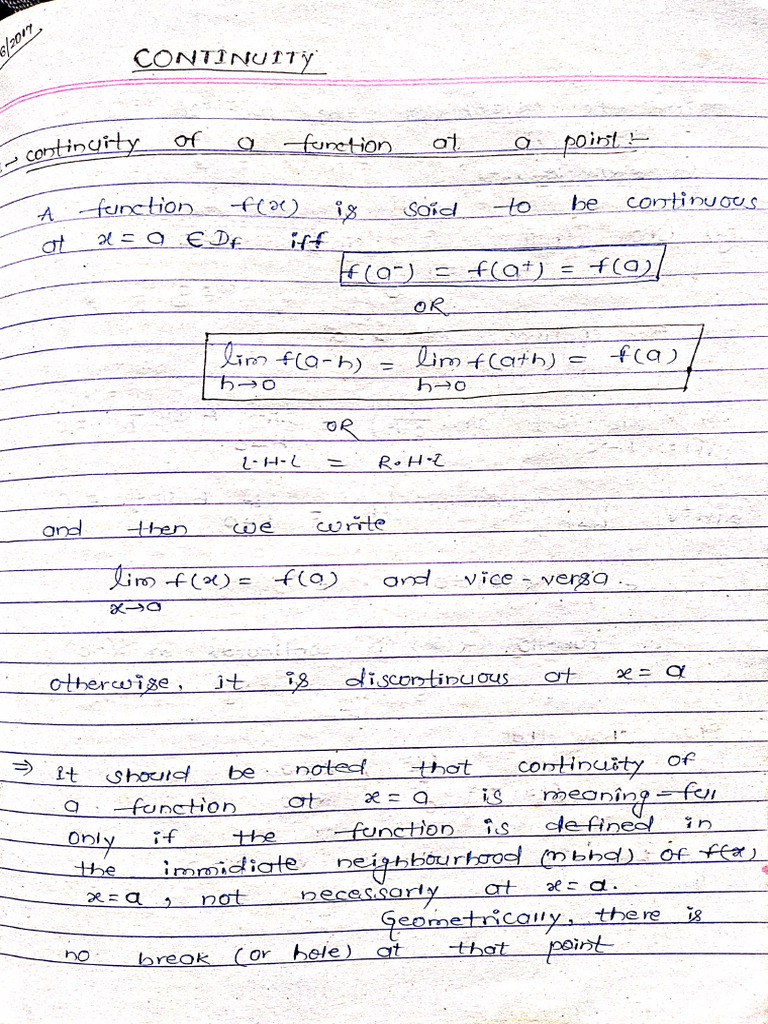 6/2017
CONTINUITY
continuity of a function at a point :-
A function f(x) is said to be continuous
at x = a ∈ Df iff
f(a-) = f(a+) = f(a)
OR
lim f(a-h) = lim f(a+h) = f(a)
h→0 h→0
OR
L.H.L = R.H.L
and then we write
lim f(x) = f(a) and vice-versa.
x→a
otherwise, it is discontinuous at x = a
⇒ it should be noted that continuity of
a function at x = a is meaning-full
only if the function is defined in
the immidiate neighbourhood (nbhd) of f(x)
x = a, not necessarly at x = a.
Geometrically, there is
no break (or hole) at that point